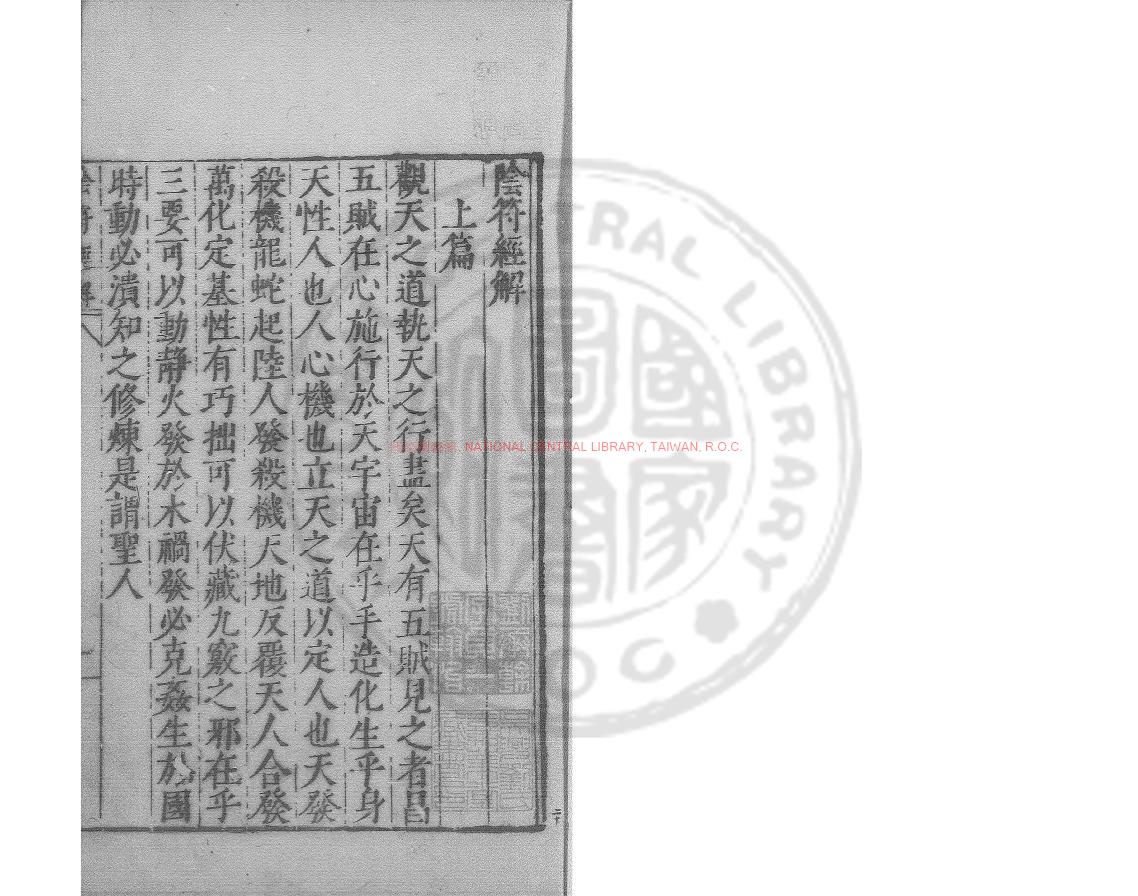 陰符經解
上篇
觀天之道執天之行盡矣天有五賊見之者昌
五賊在心施行於天宇宙在乎手造化生乎身
天性人也人心機也立天之道以定人也天發
殺機龍蛇起陸人發殺機天地反覆天人合發
萬化定基性有巧拙可以伏藏九竅之邪在乎
三要可以動靜火發於木禍發必克姦生於國
時動必潰知之修煉是謂聖人
NATIONAL CENTRAL LIBRARY, TAIWAN, R.O.C.